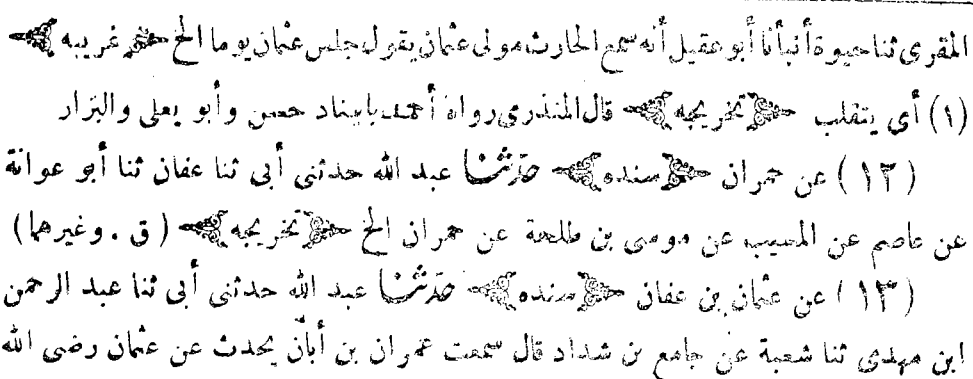 المقرى ثنا حيوة أنبأنا أبو عقيل أنه سمع الحارث مولى عثمان يقول جلس عثمان يوما الخ ﴿ غريبه ﴾
(١) أى يتقلب ﴿ تخريجه ﴾ قال المنذرى رواه أحمد باسناد حسن وأبو يعلى والبزار
( ١٢ ) عن حمران ﴿ سنده ﴾ حدثنا عبد الله حدثنى أبى ثنا عفان ثنا أبو عوانة
عن عاصم عن المسيب عن موسى بن طلحة عن حمران الخ ﴿ تخريجه ﴾ ( ق . وغيرهما )
( ١٣ ) عن عثمان بن عفان ﴿ سنده ﴾ حدثنا عبد الله حدثنى أبى ثنا عبد الرحمن
ابن مهدى ثنا شعبة عن جامع بن شداد قال سمعت حمران بن أبان يحدث عن عثمان رضى الله